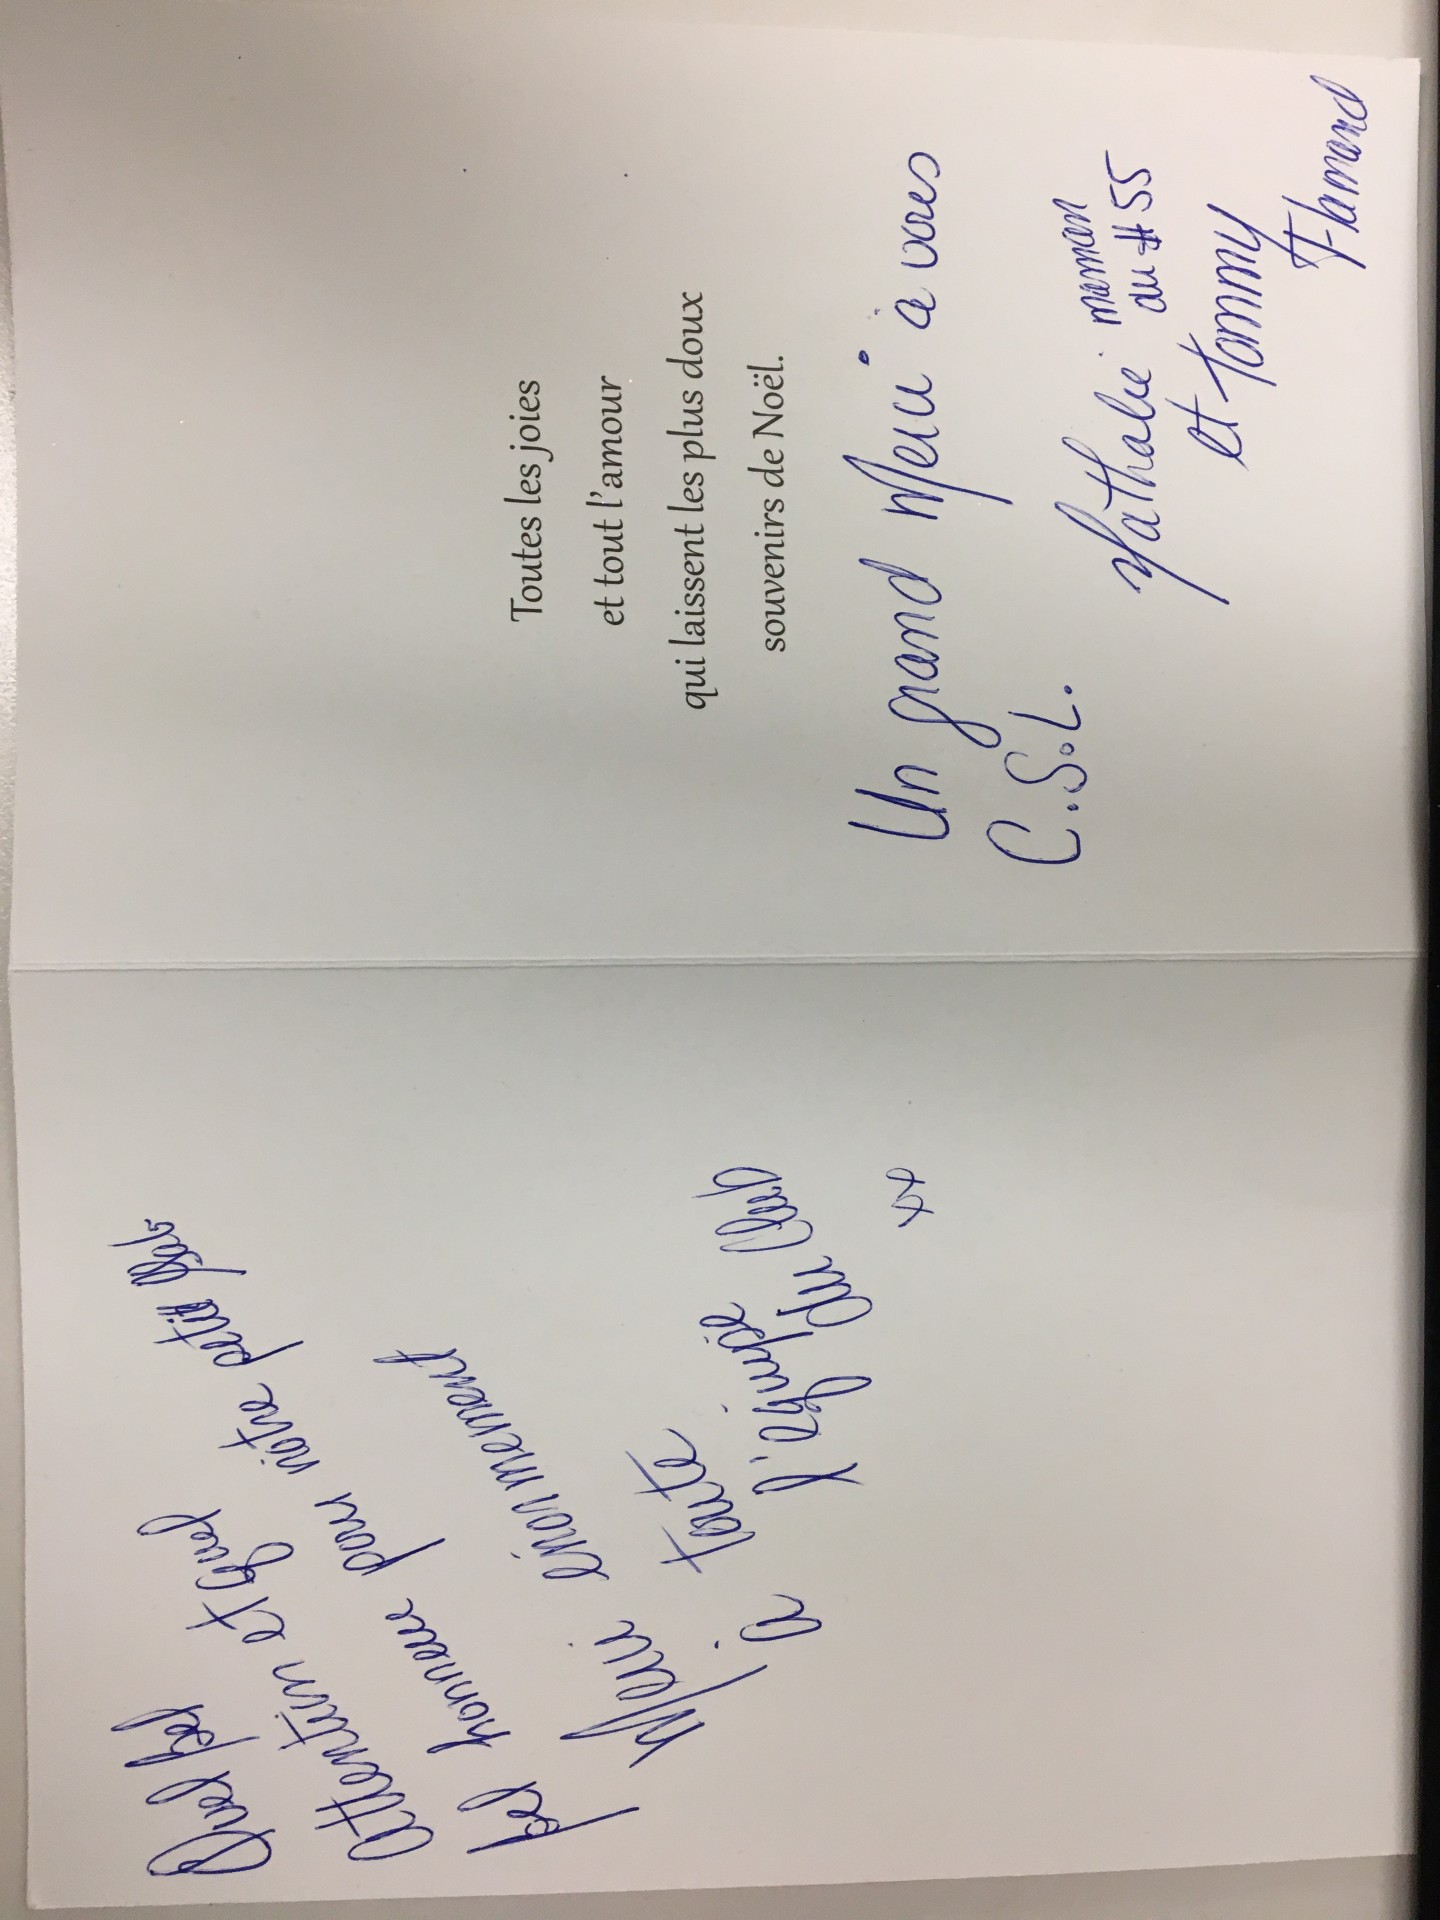 Quel bel
attention et quel
bel honneur pour nôtre petit
Merci énormément
à toute
l'équipe
du Club
xx
Toutes les joies
et tout l'amour
qui laissent les plus doux
souvenirs de Noël.
Un grand Merci à vous
C.S.L.
Nathalie maman
du #55
et Tommy
Flamand